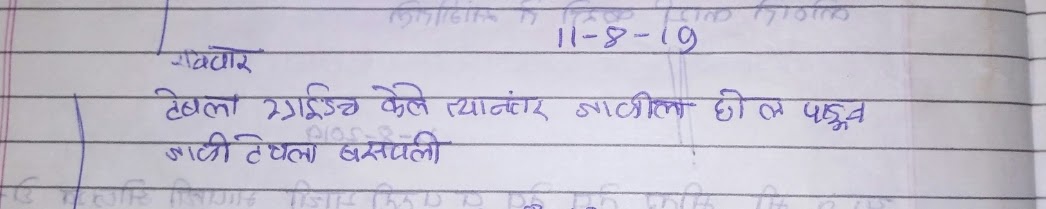 11-8-19
रविवार
टेबला ग्राईडिंच केले त्यानंतर जाळीला होल पाडून
जाळी टेबला बसवली